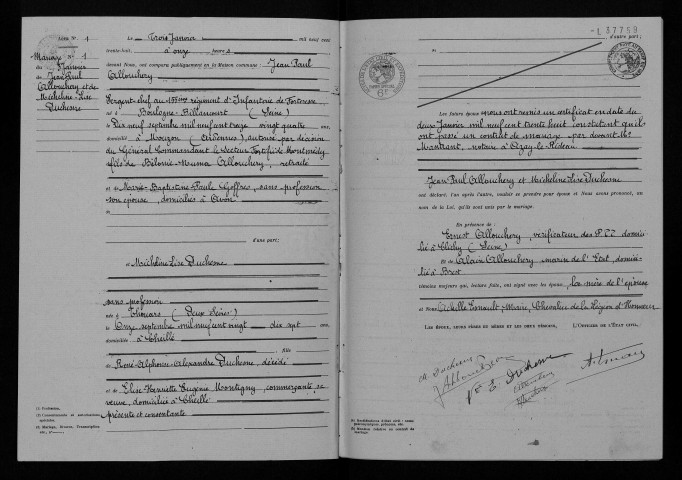 Acte N° 1
Mariage N° 1
du 3 Janvier
de Jean Paul
Allouchery et de
Micheline Lise
Duchesne
Le Trois Janvier mil neuf cent
trente-huit, à onze heures
devant Nous, ont comparu publiquement en la Maison commune Jean Paul
Allouchery
Sergent-chef au régiment d'Infanterie de Forteresse
né à Boulogne-Billancourt (Seine)
le Dix neuf septembre mil neuf cent treize vingt quatre ans,
domicilié à Mouzon (Ardennes), autorisé par décision
du Général Commandant le Secteur Fortifié de Montmédy
fils de Allouchery, retraité
et de Marie Baptistine Paule Goffres, sans profession
son épouse, domiciliés à Avon
d'une part;
et Micheline Lise Duchesne
sans profession
née à Thouars (Deux Sèvres)
le Onze septembre mil neuf cent vingt dix sept ans,
domiciliée à Cheillé
fille
de René Alphonse Alexandre Duchesne décédé
et de Elise Henriette Eugénie Montigny, commerçante, sa
veuve, domiciliée à Cheillé
présente et consentante
(1) Profession.
L 37759
d'autre part;
Les futurs époux nous ont remis un certificat en date du
deux Janvier mil neuf cent trente huit constatant qu'ils
ont passé un contrat de mariage par devant Me
notaire à Azay-le-Rideau
Jean Paul Allouchery et Micheline Lise Duchesne
ont déclaré, l'un après l'autre, vouloir se prendre pour époux et Nous avons prononcé, au
nom de la Loi, qu'ils sont unis par le mariage.
En présence de :
Ernest Allouchery, vérificateur des P.T.T. domici-
lié à Clichy (Seine)
et de Alain Allouchery marin de l'Etat, domici-
lié à Brest
témoins majeurs qui, lecture faite, ont signé avec les époux, la mère de l'épouse
et Nous Achille Ernault, Maire, Chevalier de la Légion d'Honneur
L'Officier de l'État civil.
M. Duchesne
Allouchery
Vve E. Duchesne